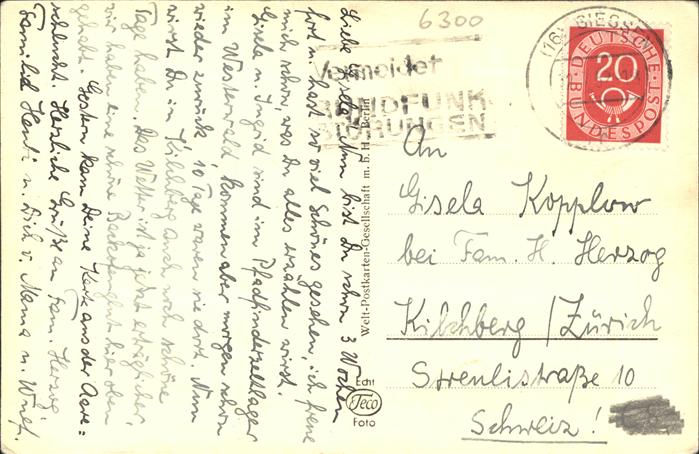 Liebe Gisela! Nun bist Du schon 3 Wochen
fort u. hast so viel Schönes gesehen, ich freue
mich schon, was Du alles erzählen wirst.
Gisela u. Ingrid sind im Pfadfinderzeltlager
im Westerwald, kommen aber morgen schon
wieder zurück, 10 Tage waren sie dort. Nun
wirst Du in Kilchberg auch noch schöne
Tage haben. Das Wetter ist ja jetzt erträglicher,
wir haben eine schöne hier oben
gehabt. Gestern kam Deine Karte aus der Aare=
schlucht. Herzliche Grüße an Fam. Herzog
Familie u. Dich v. Mama u.
6300
Vermeidet
RUNDFUNK
STÖRUNGEN
(16) SIEGS
DEUTSCHE BUNDESPOST
20
An
Gisela Kopplow
bei Fam. H. Herzog
Kilchberg / Zürich
Straße 10
Schweiz!
Welt-Postkarten-Gesellschaft m. b. H. Berlin
Echt
Teco
Foto